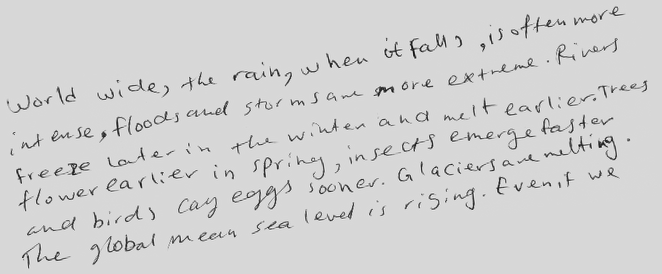 World wide, the rain, when it falls, is often more
intense, floods and storms are more extreme. Rivers
freeze later in the winter and melt earlier. Trees
flower earlier in spring, insects emerge faster
and birds lay eggs sooner. Glaciers are melting.
The global mean sea level is rising. Even if we